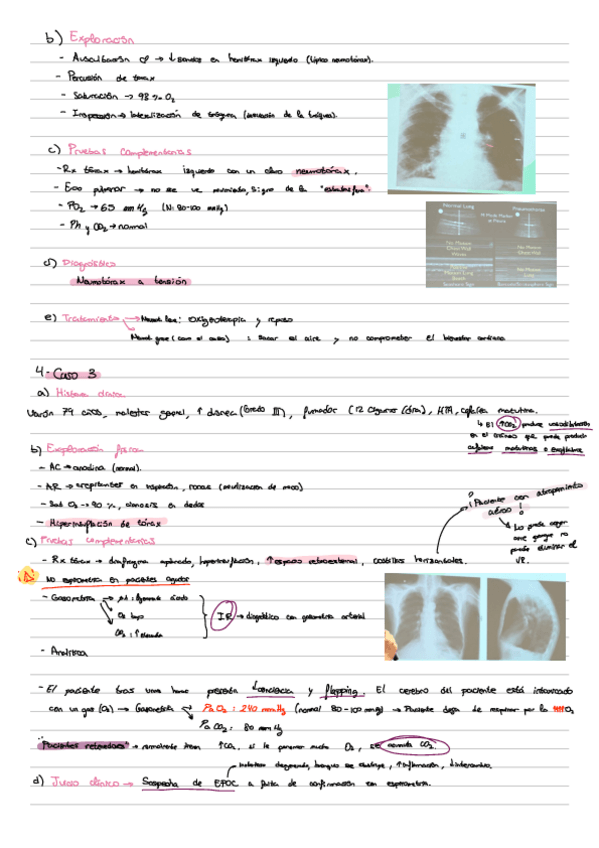 b) Exploración
- Auscultación → ↓ sonidos en hemitórax izquierdo (típico neumotórax).
- Percusión de tórax
- Saturación → 98 % O2
- Inspección → lateralización de tráquea (desviación de la tráquea).
c) Pruebas complementarias
- Rx tórax → hemitórax izquierdo con un claro neumotórax.
- Eco pulmonar → no se ve movimiento, signo de la "estratosfera".
- PO2 → 65 mmHg (N: 80-100 mmHg)
- Ph y CO2 → normal
Normal Lung
Pneumothorax
No Motion
Chest Wall
Pleura
No Motion
Chest Wall
Motion
Lung
Seashore Sign
No Motion
Lung
d) Diagnóstico
Neumotórax a tensión
e) Tratamiento → Neumot. leve: oxigenoterapia y reposo
Neumot. grave (como el caso): sacar el aire y no comprometer el bienestar cardiaco
4. Caso 3
a) Historia clínica
Varón 79 años, malestar general, ↑ disnea (Grado III), fumador (12 cigarros/día), HTA, cefalea matutina.
↳ El ↑CO2 produce vasodilatación
en el encéfalo que puede producir
cefaleas matutinas o encefalitis
b) Exploración física
- AC → anodina (normal).
- AR → crepitantes en inspiración, roncus (movilización de moco)
- Sat O2 → 90 %, cianosis en dedos
- Hiperinsuflación de tórax
¡Paciente con atrapamiento
aéreo!
↳ Lo puede coger
aire porque no
puede eliminar el
VR.
c) Pruebas complementarias
- Rx tórax → diafragma aplanado, hiperinsuflación, ↑ espacio retroesternal, costillas horizontales.
⚠ No espirometría en pacientes agudos
- Gasometría → pH: ligeramente ácido
O2 bajo
CO2: ↑ elevada
IR → diagnóstico con gasometría arterial
- Analítica
- El paciente tras una hora presenta tendencia y flapping. El cerebro del paciente está intoxicado
con un gas (O2) → Gasometría → PaO2: 240 mmHg (normal 80-100 mmHg) → Paciente deja de respirar por la O2
PaCO2: 80 mmHg
"Pacientes retenedores" → normalmente tienen ↑CO2, si le ponemos mucho O2, se acumula CO2.
d) Juicio clínico → Sospecha de EPOC a falta de confirmación con espirometría.